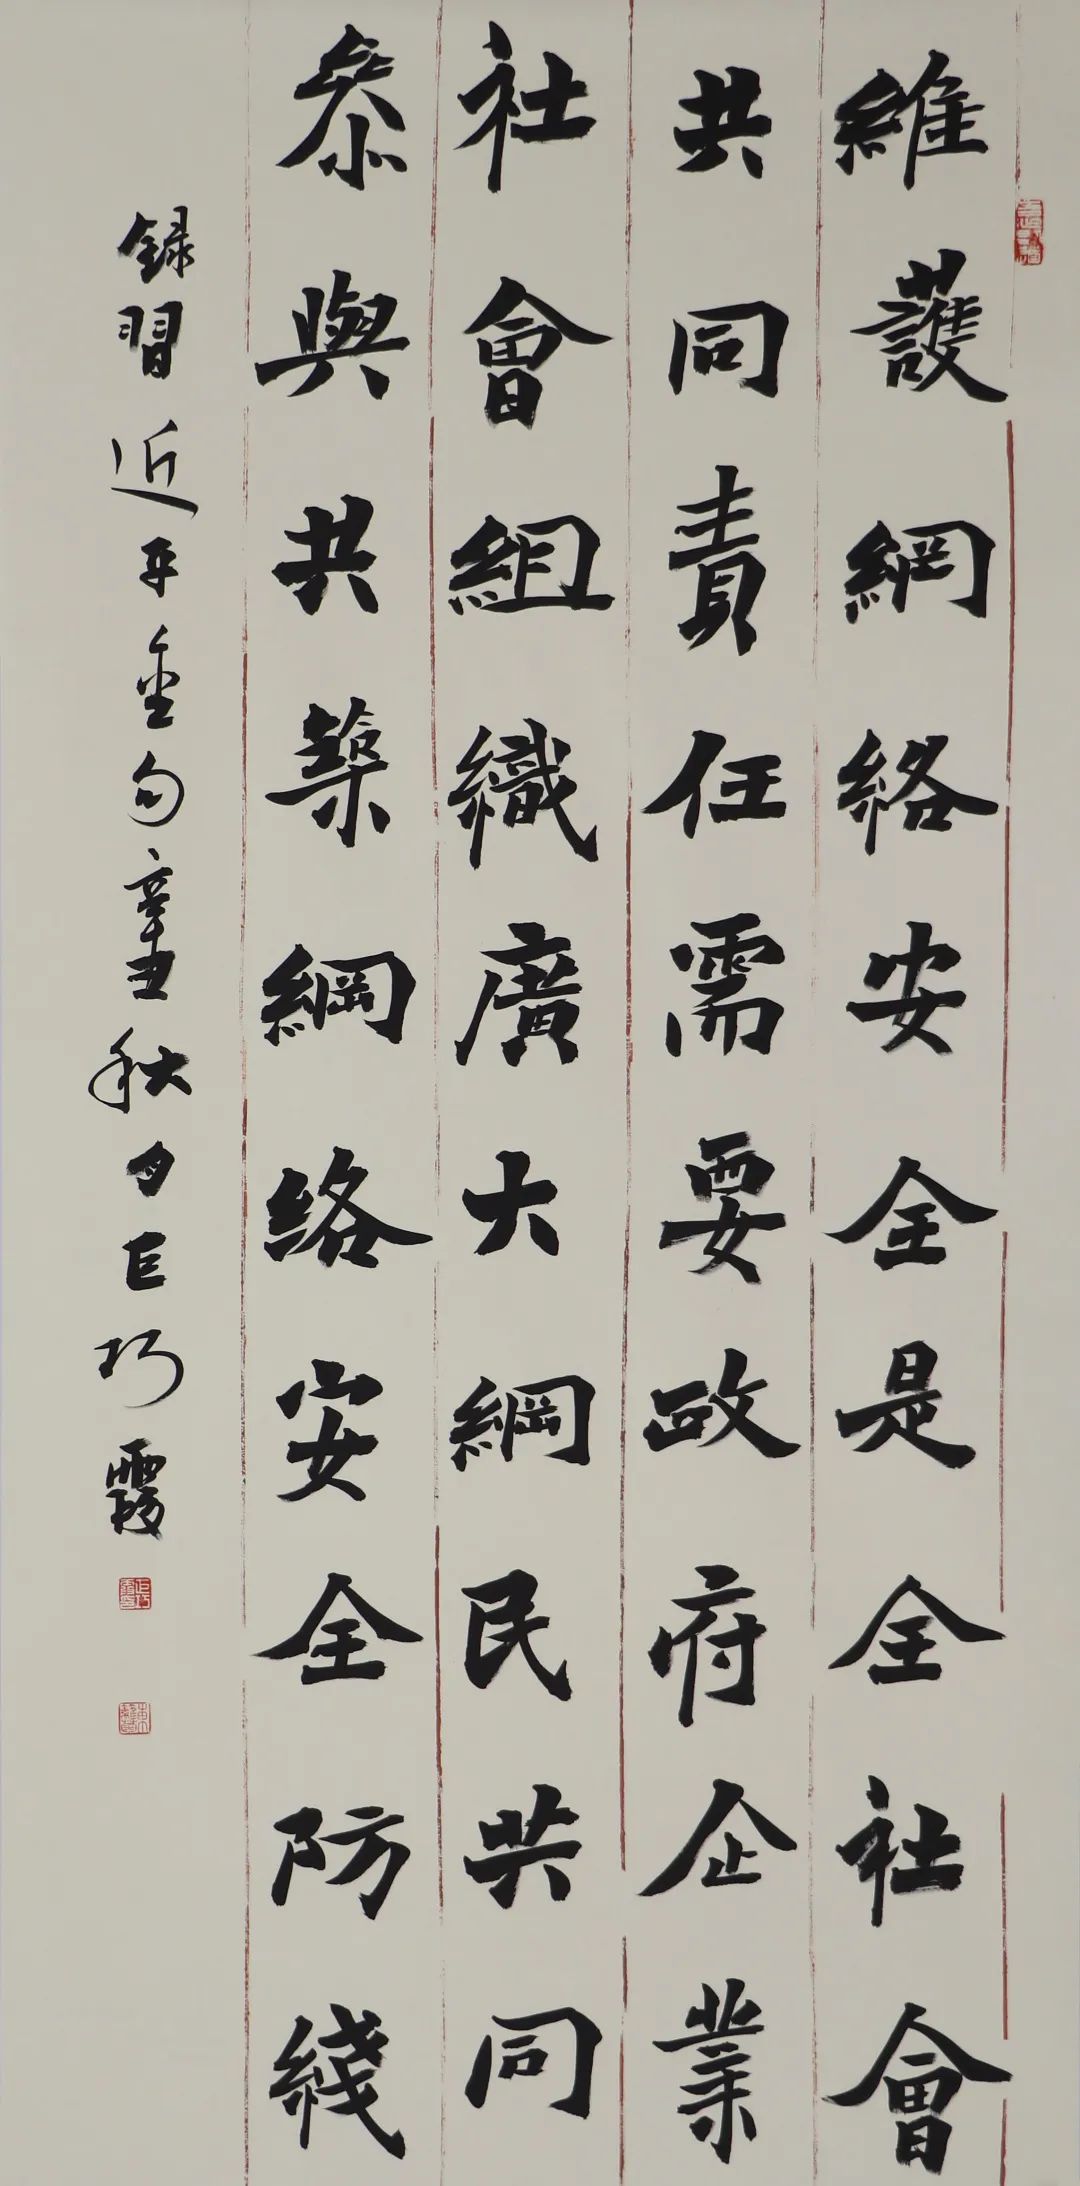 維護網絡安全是全社會
共同責任需要政府企業
社會組織廣大網民共同
參與共築網絡安全防綫
録習近平金句辛丑秋月巨巧霞